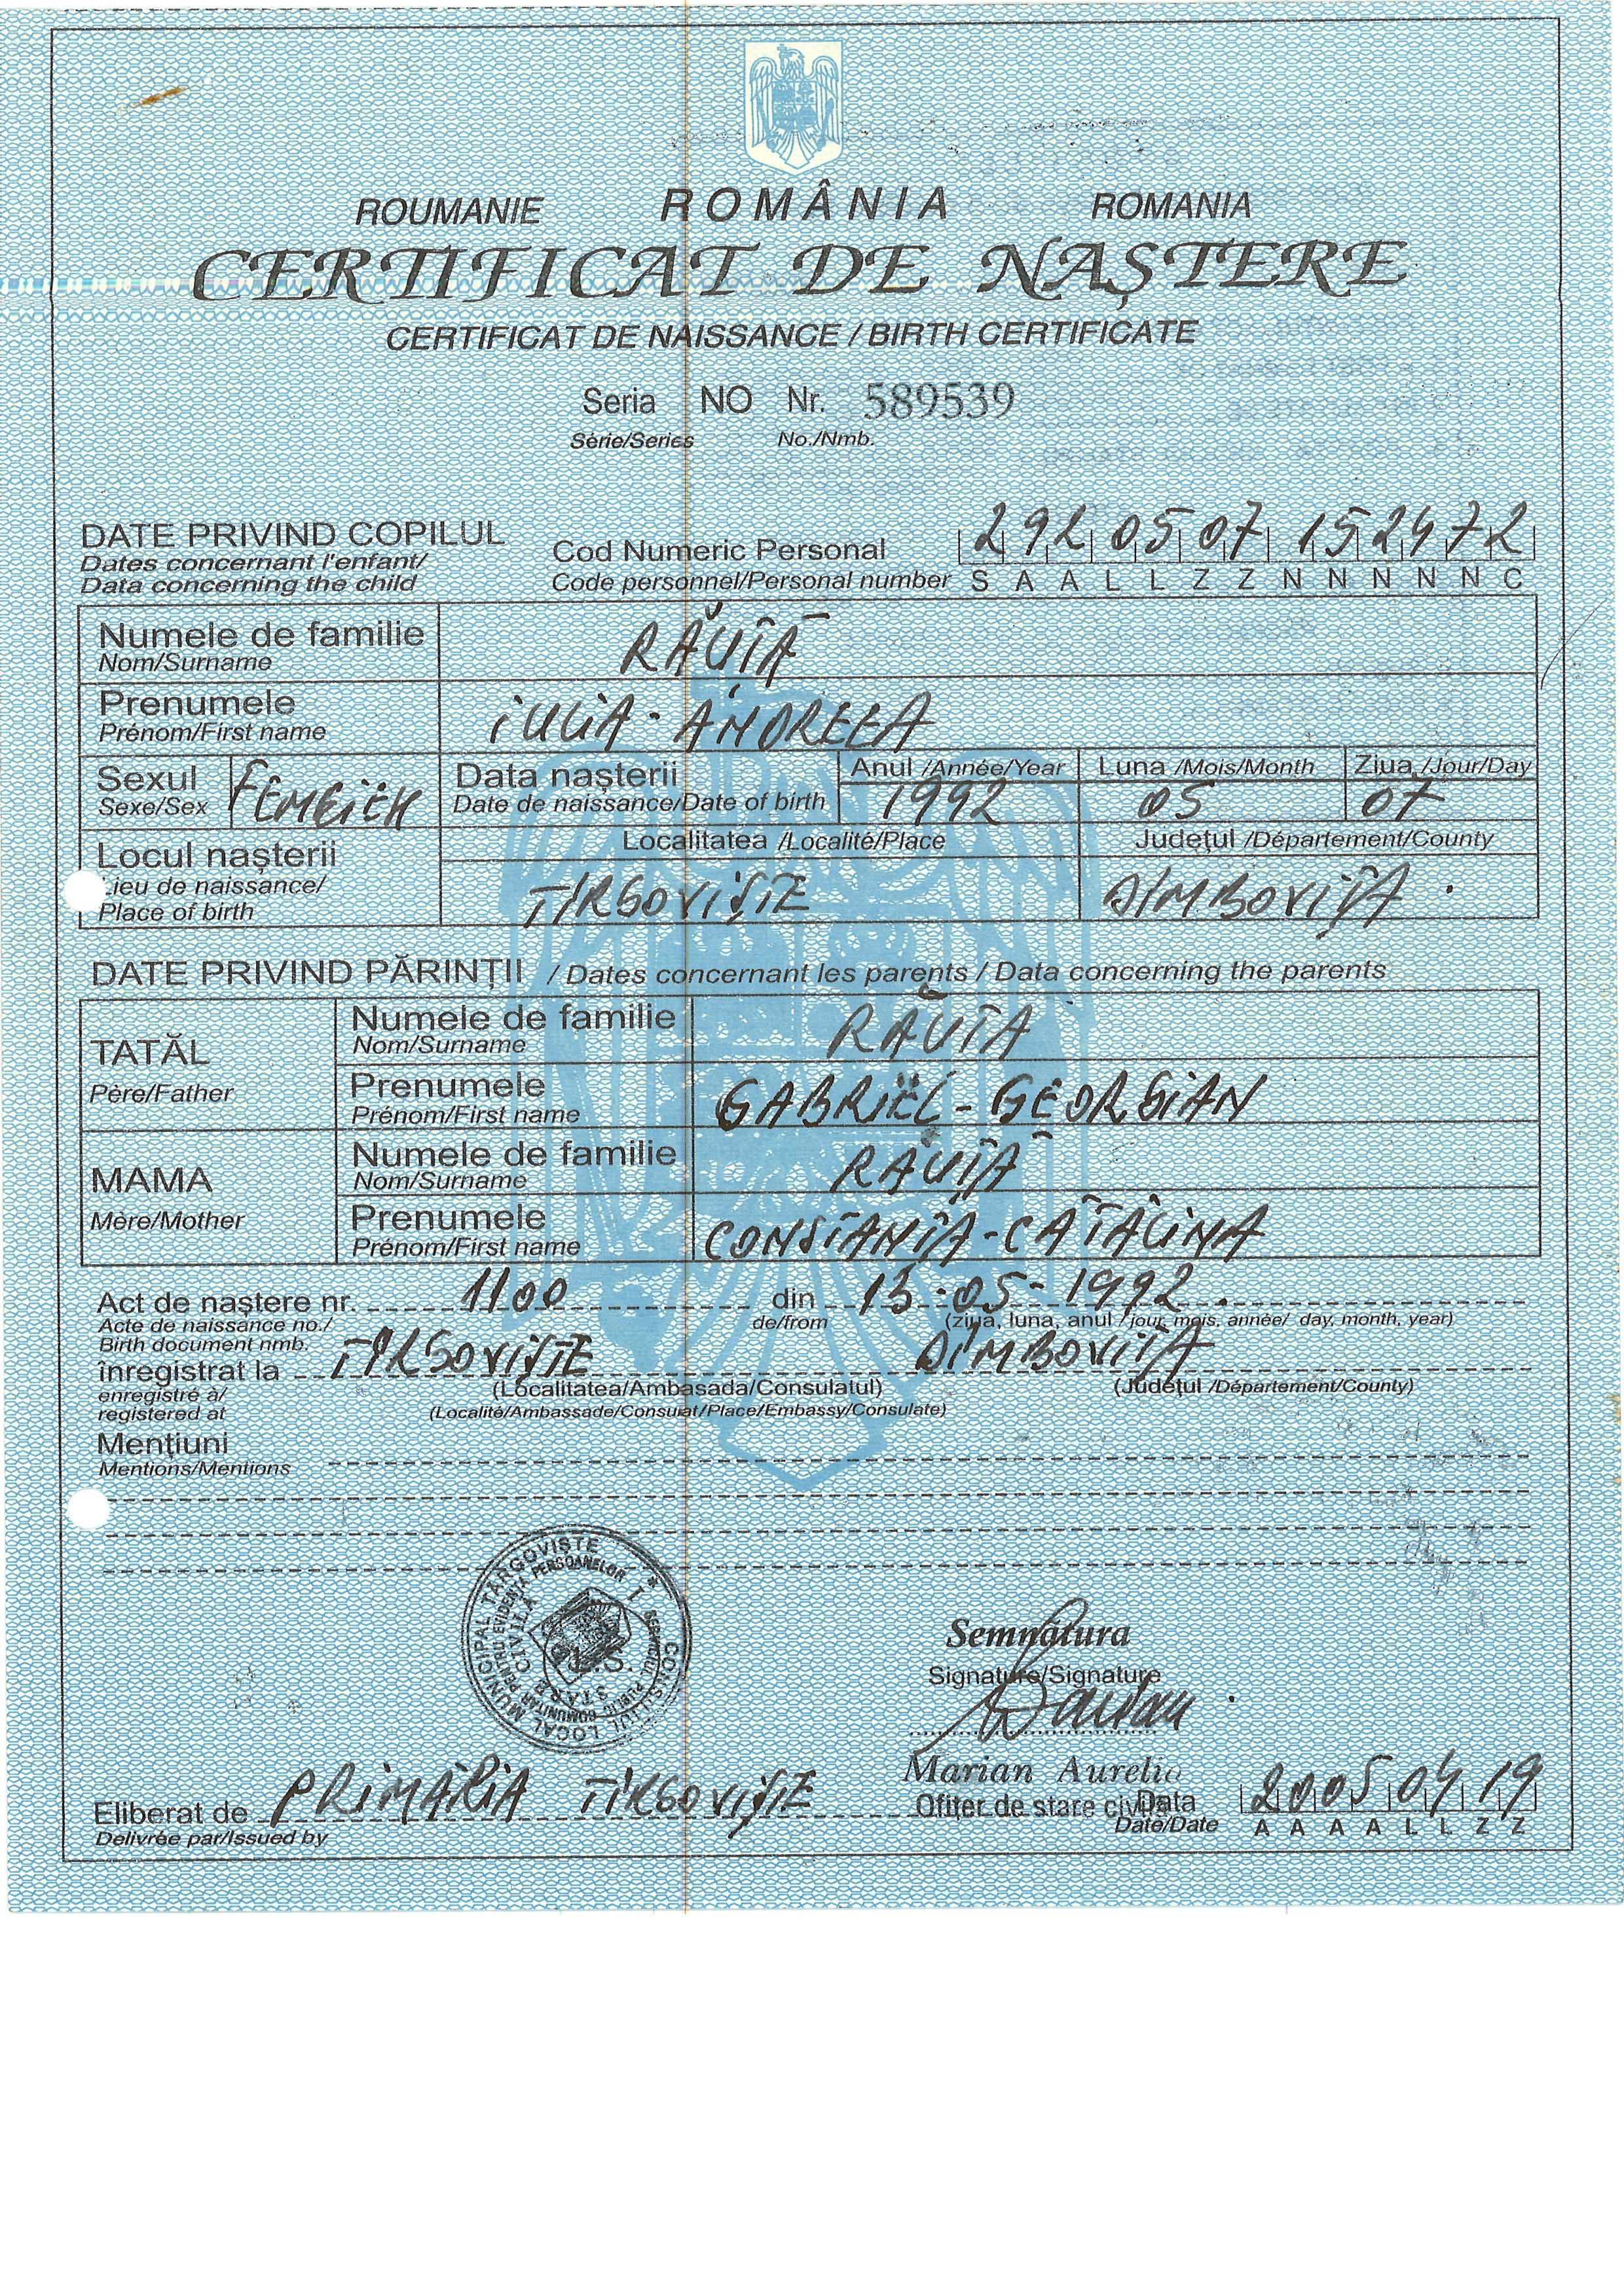 ROUMANIE ROMÂNIA ROMANIA
CERTIFICAT DE NAȘTERE
CERTIFICAT DE NAISSANCE / BIRTH CERTIFICATE
Seria NO Nr. 589539
Série/Series No./Nmb.
DATE PRIVIND COPILUL
Dates concernant l'enfant/
Data concerning the child
Cod Numeric Personal 2920507152472
Code personnel/Personal number S A A L L Z Z N N N N N C
Numele de familie RĂUTĂ
Nom/Surname
Prenumele IULIA-ANDREEA
Prénom/First name
Sexul FEMEIESC
Sexe/Sex
Data nașterii
Date de naissance/Date of birth
Anul /Année/Year Luna /Mois/Month Ziua /Jour/Day
1992 05 07
Locul nașterii
Lieu de naissance/
Place of birth
Localitatea /Localité/Place Județul /Département/County
TÎRGOVIȘTE DÎMBOVIȚA
DATE PRIVIND PĂRINȚII / Dates concernant les parents / Data concerning the parents
TATĂL
Père/Father
Numele de familie RĂUTĂ
Nom/Surname
Prenumele GABRIEL-GEORGIAN
Prénom/First name
MAMA
Mère/Mother
Numele de familie RĂUTĂ
Nom/Surname
Prenumele CONSTANȚA-CĂTĂLINA
Prénom/First name
Act de naștere nr. 1100 din 13-05-1992
Acte de naissance no./ de/from (ziua, luna, anul / jour, mois, année/ day, month, year)
Birth document nmb.
înregistrat la TÎRGOVIȘTE DÎMBOVIȚA
enregistré à/ (Localitatea/Ambasada/Consulatul) (Județul /Département/County)
registered at (Localité/Ambassade/Consulat/Place/Embassy/Consulate)
Mențiuni
Mentions/Mentions
CONSILIUL LOCAL MUNICIPAL TÂRGOVIȘTE
SERVICIUL PUBLIC COMUNITAR PENTRU EVIDENȚA PERSOANELOR
STARE CIVILĂ
L.S.
Semnătura
Signature/Signature
Marian Aurelia
Ofițer de stare civilă
Eliberat de PRIMĂRIA TÎRGOVIȘTE
Délivrée par/Issued by
Data 2005 04 19
Date/Date A A A A L L Z Z